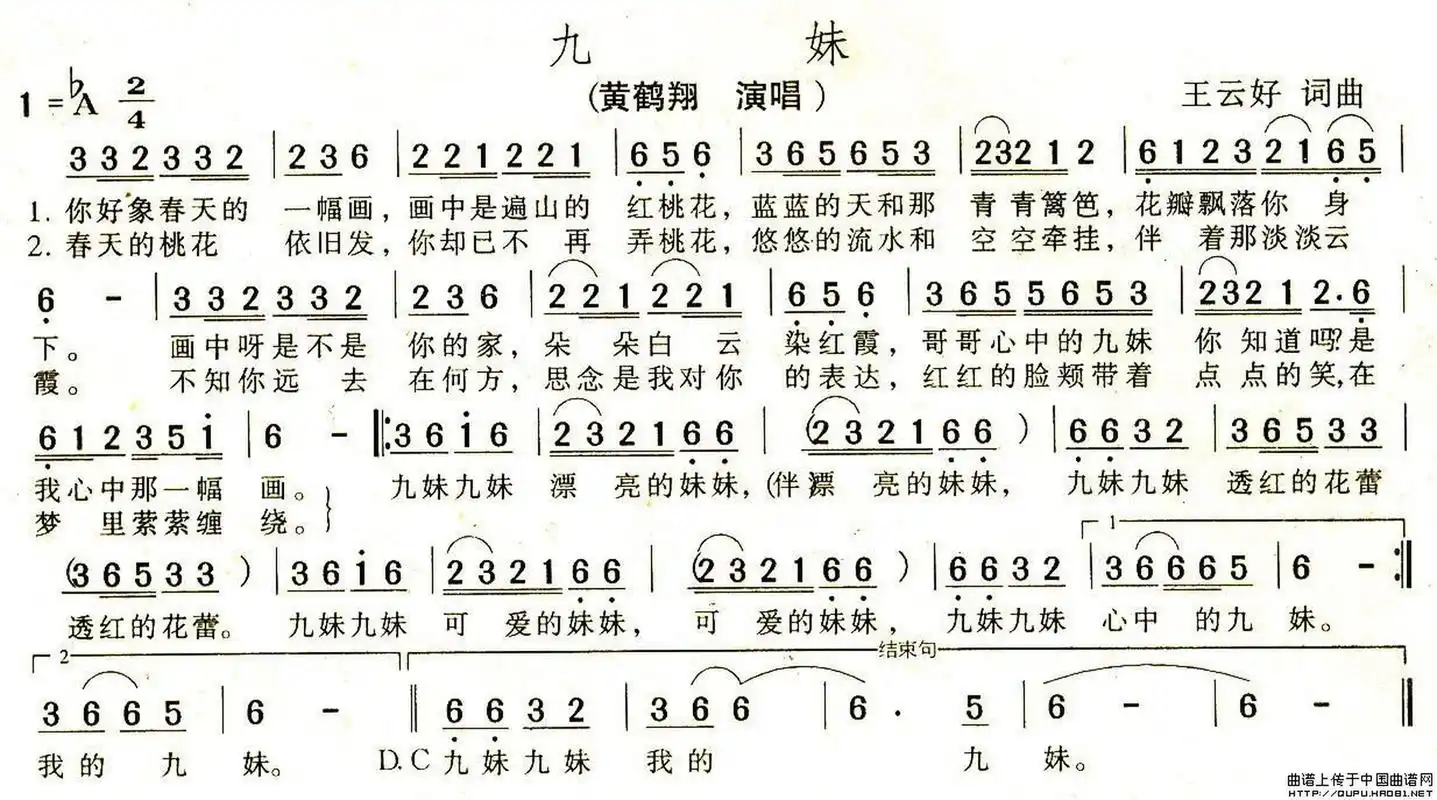 九 妹
(黄鹤翔 演唱)
1=♭A 2/4
王云好 词曲
3 3 2 3 3 2 | 2 3 6 | 2 2 1 2 2 1 | 6 5 6 | 3 6 5 6 5 3 | 2 3 2 1 2 | 6 1 2 3 2 1 6 5 |
1. 你好象春天的 一幅画，画中是遍山的 红桃花，蓝蓝的天和那 青青篱笆，花瓣飘落你 身
2. 春天的桃花 依旧发，你却已不 再 弄桃花，悠悠的流水和 空空牵挂，伴 着那淡淡云
6 - | 3 3 2 3 3 2 | 2 3 6 | 2 2 1 2 2 1 | 6 5 6 | 3 6 5 5 6 5 3 | 2 3 2 1 2. 6 |
下。 画中呀是不是 你的家，朵 朵白 云 染红霞，哥哥心中的九妹 你 知道吗?是
霞。 不知你远 去 在何方，思念是我对你 的表达，红红的脸颊带着 点 点的笑,在
6 1 2 3 5 i | 6 - |: 3 6 i 6 | 2 3 2 1 6 6 | (2 3 2 1 6 6) | 6 6 3 2 | 3 6 5 3 3 |
我心中那一幅 画。 九妹九妹 漂 亮的妹妹，(伴)漂 亮的妹妹， 九妹九妹 透红的花蕾
梦 里萦萦缠 绕。
1
(3 6 5 3 3) | 3 6 i 6 | 2 3 2 1 6 6 | (2 3 2 1 6 6) | 6 6 3 2 | 3 6 6 6 5 | 6 - :|
透红的花蕾。 九妹九妹 可 爱的妹妹， 可 爱的妹妹， 九妹九妹 心中 的九 妹。
2 结束句
3 6 6 5 | 6 - || 6 6 3 2 | 3 6 6 | 6 . 5 | 6 - | 6 - ||
我的 九 妹。 D.C 九妹九妹 我的 九 妹。
曲谱上传于中国曲谱网
HTTP://QUPU.HAO81.NET